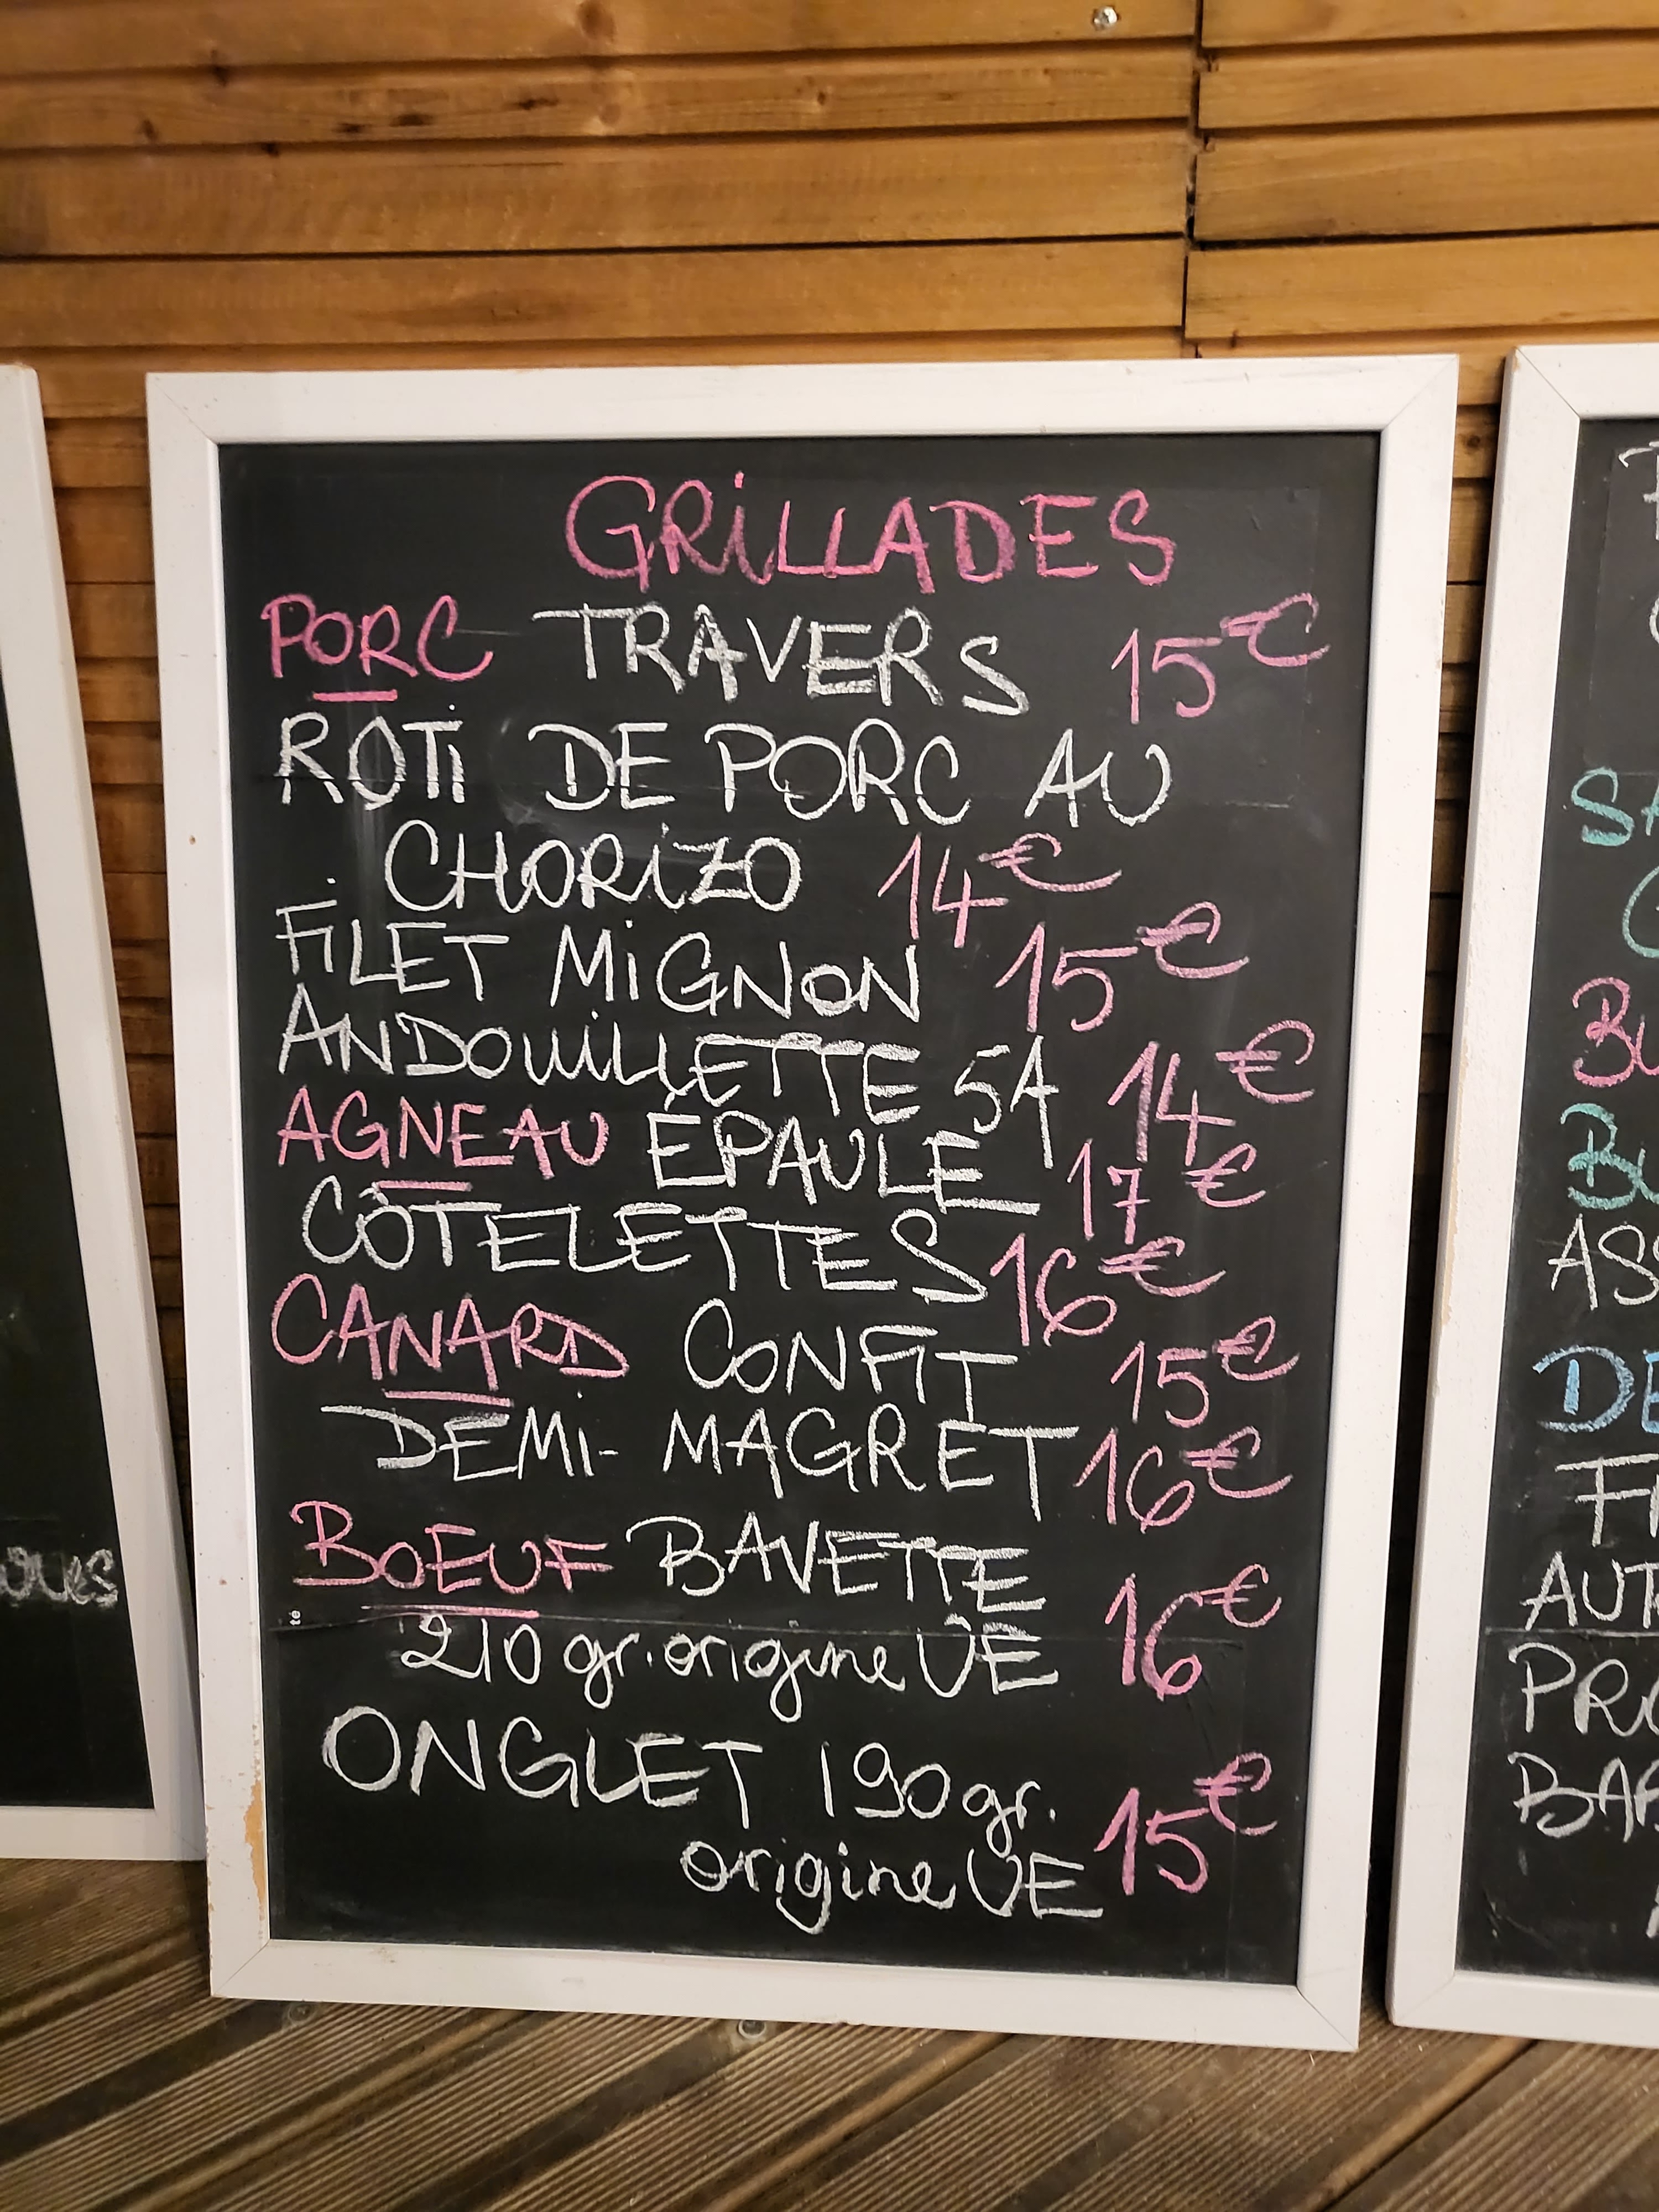 GRiLLADES
PORC TRAVERS 15€
ROTi DE PORC AU
CHORiZO 14€
FiLET MiGNON 15€
ANDOUiLLETTE 5A 14€
AGNEAU ÉPAULE 17€
CÔTELETTES 16€
CANARD CONFIT 15€
DEMi- MAGRET 16€
BOEUF BAVETTE
210 gr. origine UE 16€
ONGLET 190 gr.
origine UE 15€